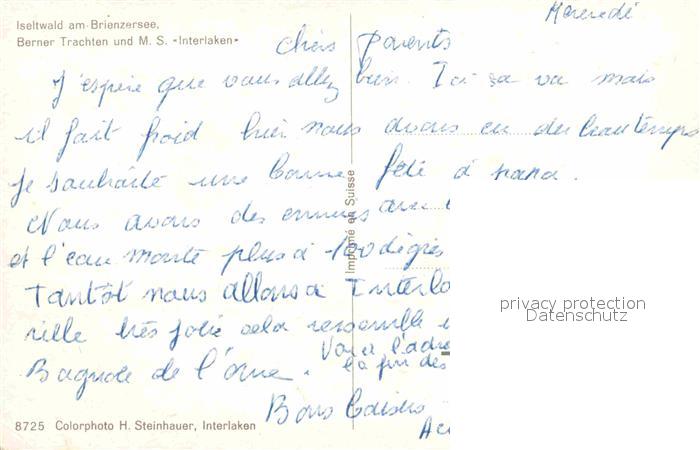 Iseltwald am Brienzersee,
Berner Trachten und M. S. «Interlaken»
Mercredi
Chers Parents
J'espère que vous allez bien. Ici sa va mais
il fait froid hier nous avons eu du beau temps
Je souhaite une bonne fête à
Nous avons des ennuis avec
et l'eau monte plus à 100 dégrés
Tantôt nous allons à Interla
ville très jolie cela ressemble
Bagnole de l'orne.
Voici l'adre
la fin des
Bons Baisers
8725 Colorphoto H. Steinhauer, Interlaken
Imprimé en Suisse
privacy protection
Datenschutz